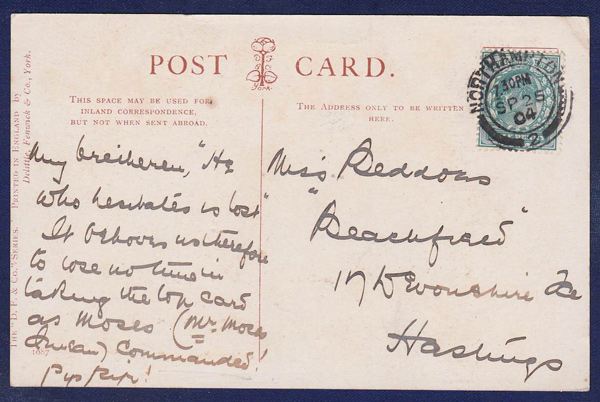 POST CARD.
York.
THIS SPACE MAY BE USED FOR
INLAND CORRESPONDENCE,
BUT NOT WHEN SENT ABROAD.
THE ADDRESS ONLY TO BE WRITTEN
HERE.
THE "D. F. & CO." SERIES. PRINTED IN ENGLAND BY
Delittle, Fenwick & Co., York.
1087
NORTHAMPTON
30PM
SP 25
04
2
My bretheren, "He
who hesitates is lost"
It behoves us therefore
to lose no time in
taking the top card
as Moses (Mr. Moses
I mean) commanded!
Pip Pip!
Miss Reddons
"Beachfield"
17 Devonshire
Hastings